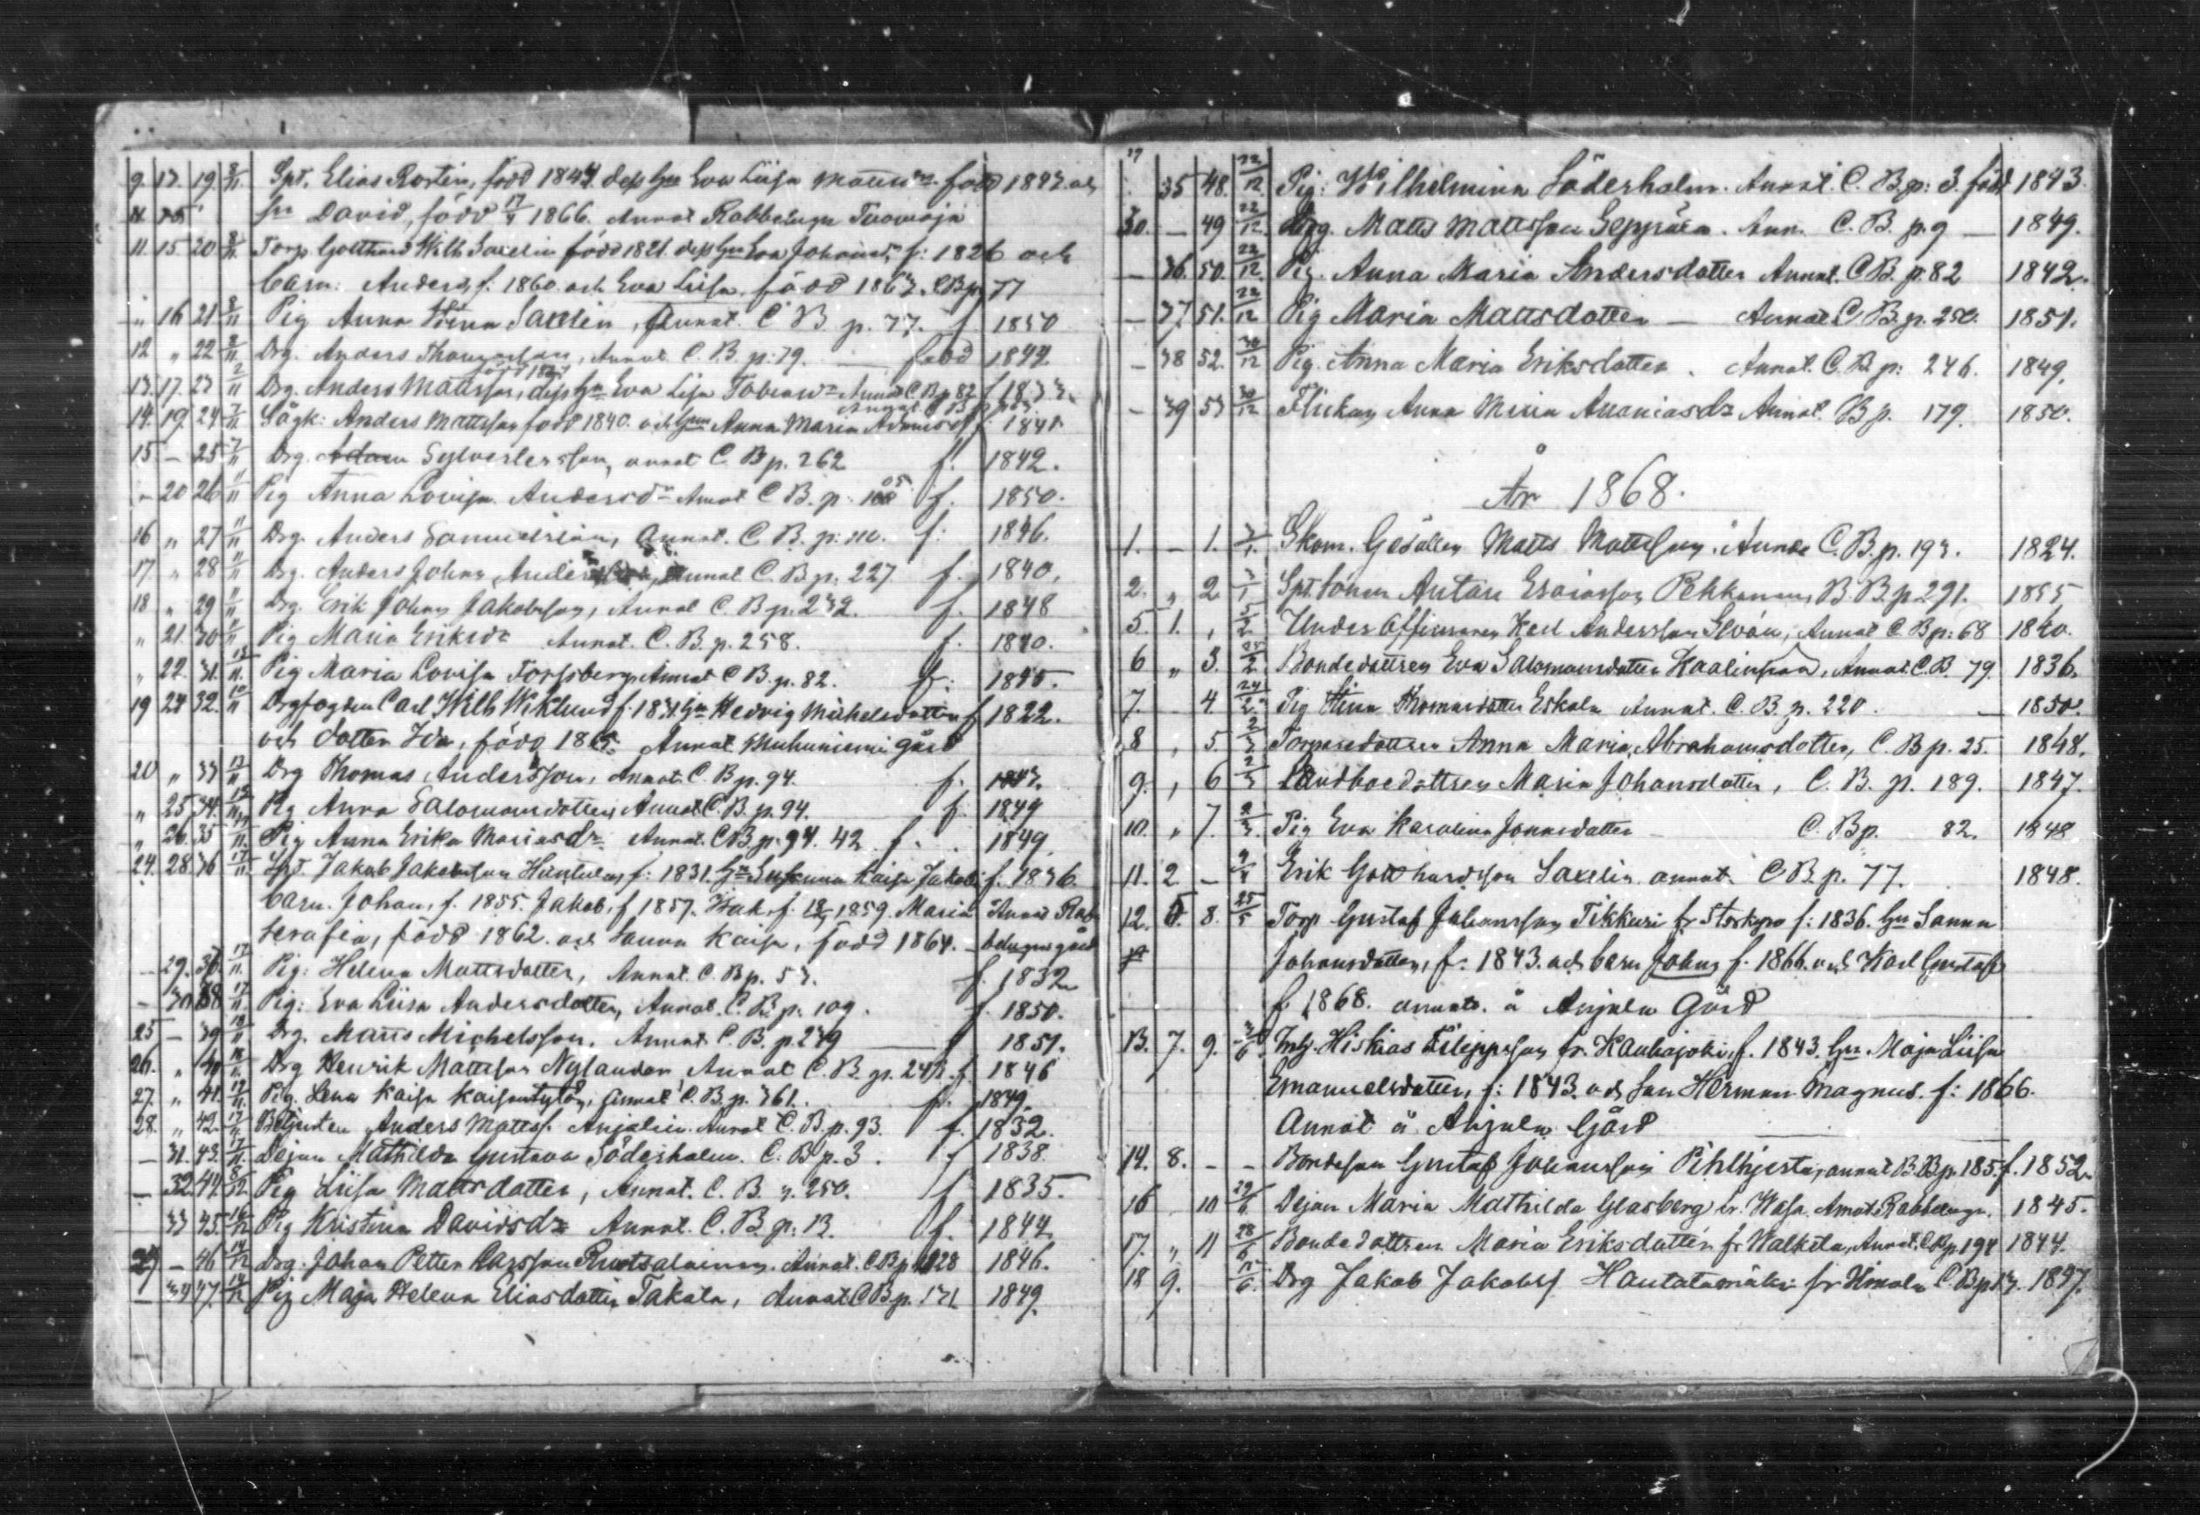 9. 13. 19 8/11. Spt. Elias Rostén, född 1847 dess hu Eva Liisa född 1847. och
sn David, född 17/4 1866. Annot Rabbelugn Tuomoja
11. 15 20 8/11. Torp Gotthard Wilh Saxelin född 1821. dess hu Eva Johansdr f: 1826 och
barn: Anders f. 1860. och Eva Liisa född 1863. CBp 77
„ 16 21 8/11 Pig Anna Stina Saxelin, Annot. C B p. 77. f. 1850
12 „ 22 8/11 Drg. Anders Thomasson, Annot. C. B. p: 79. född 1844.
13. 17. 23 2/11 Drg. Anders Mattsson, dess hu Eva Lisa Annot C Bp 82 f 1833.
14. 19. 24 7/11 Sågk: Anders Mattsson född 1840. och hun Anna Maria f: 1841.
15. – 25 7/11 Drg. Adam Sylvestersson, annot C. B p. 262 f. 1842.
– 20 26 11/11 Pig Anna Lovisa Andersdr Annot C B. p. f. 1850.
16 „ 27 11/11 Drg. Anders Samuelsson, Annot. C. B. p: 110. f: 1846.
17. „ 28 11/11 Drg. Anders Johan Annot C. B p: 227 f. 1840.
18 „ 29 11/11 Drg. Erik Johan Jakobsson, Annot C. B p. 232. f. 1848
„ 21. 30 11/11 Pig Maria Eriksdr Annot. C. B. p. 258. f. 1840.
„ 22. 31. Pig Maria Lovisa Forssberg Annot C B. p. 82. f. 1845.
19 24 32. Drgfogden Carl Wilh Wiklund f. hu Hedvig Michelsdotter f 1822.
och dotter Ida, född Annot Muhuniemi gård
20 „ 33 Drg Thomas Andersson, Annot. C. B p. 94. f. 1843.
„ 25. 34. Pig Anna Salomonsdotter, Annot C. B. p. 94. f. 1849
„ 26. 35 Pig Anna Erika Mariasdr. Annot. C B. p. 94. 42 f. 1849.
24. 28 36 17/11. Spt. Jakob Jakobsson f: 1831. hu Susanna Kaisa f. 1836.
barn. Johan, f. 1855. Jakob, f 1857. Isak, f. 1859. Maria Annot Rab-
Serafia, född 1862. och Sanna Kaisa, född 1864. – belugns gård
– 29. 17/11. Pig: Helena Mattsdotter, Annot. C. B p. 53. f. 1832
– 30 38 17/11 Pig: Eva Liisa Andersdotter, Annot. C. B. p: 109. f. 1850.
25 – 39 18/11 Drg. Matts Michelsson. Annot C. B. p. 249 f 1851.
26. „ 40 Drg Henrik Mattsson Nylander Annot C. B. p. 242. f. 1846
27. „ 41. Pig. Lena Kaisa Kaisantytär, annot C. B. p. 361. f. 1849.
28. „ 42. Betjenten Anders Matts. Anjalin Annot C. B. p. 93. f. 1832.
– 31. 43. Dejan Mathilda Gustava Söderholm. C. B p. 3. f 1838.
– 32. 44. Pig Liisa Mattsdotter, Annot. C. B. p. 250. f 1835.
33 45. Pig Kristina Davidsdr Annot. C. B. p: 13. f. 1844.
29 – 46 14/12 Drg. Johan Petter Larsson Ruotsalainen. Annot. C B p 1846.
– 34 47. 14/12 Pig Maja Helena Eliasdotter Takala, Annot C B p. 131 1849.
35 48. 22/12. Pig: Wilhelmina Söderholm. Annot C. B p: 3. född 1843.
30. – 49 22/12. Drg. Matts Mattsson Seppälä. Ann. C. B. p. 9 – 1849.
– 36. 50. 22/12. Pig. Anna Maria Andersdotter Annot. C B. p. 82 1842.
– 37 51. 22/12 Pig Maria Mattsdotter – Annot C B p. 250. 1851.
– 38 52. 30/12 Pig. Anna Maria Eriksdotter. Annot. C. B p: 246. 1849.
– 39 53 30/12 Flickan Anna Maria Ananiasdr Annot. B p. 179. 1850.
År 1868.
1. – 1. 3/1. Skom. Gesällen Matts Mattsson. Annot C. B. p. 193. 1824.
2. „ 2 3/1 Spt. sonen Antti Esaiasson Pekkanen B. B. p 291. 1855
5. 1. , 5/2 Under Officeren Karl Andersson Annot C. B p: 68 1840.
6 „ 3. Bondedottren Eva Salomonsdotter Kaalinpää, Annot. C. B. 79. 1836.
7. – 4. 24/2 Pig Stina Thomasdotter Eskola Annot. C. B. p. 220. – 1850.
8 , 5. 2/3 Torparedottren Anna Maria Abrahamsdotter, C. B p. 25. 1848.
9. , 6 2/3 Landboedottren Maria Johansdotter, C. B. p. 189. 1847.
10. „ 7. 2/3. Pig Eva Karolina Jonasdotter C. B p. 82. 1848
11. 2. – 9/4 Erik Gotthardsson Saxelin annot. C B. p. 77. 1848.
12. 8. 25/5 Torp Gustaf Johansson Tikkuri fr Storkyro f: 1836. hu Sanna
Johansdotter, f. 1843. och barn Johan f. 1866. och Karl Gustaf
f 1868. annot. å Anjala Gård
13. 7. 9. Inh. Hiskias Filippsson fr. Kauhajoki, f. 1843. hu Maja Liisa
Emanuelsdotter, f: 1843. och son Herman Magnus. f: 1866.
Annot å Anjala Gård
14. 8. – – Bondeson Gustaf Johansson Pihlhjerta, annot B. Bp. 185. f. 1852
16 10 29/6 Dejan Maria Mathilda Glasberg fr. Wasa. Annot Rabbelugn. 1845.
17. „ 11 28/6 Bondedottren Maria Eriksdotter fr Walkela, Annot. C Bp. 194 1844.
18 9. Drg Jakob Jakobss Hautatamäki fr Ilmola C. Bp 13. 1837.